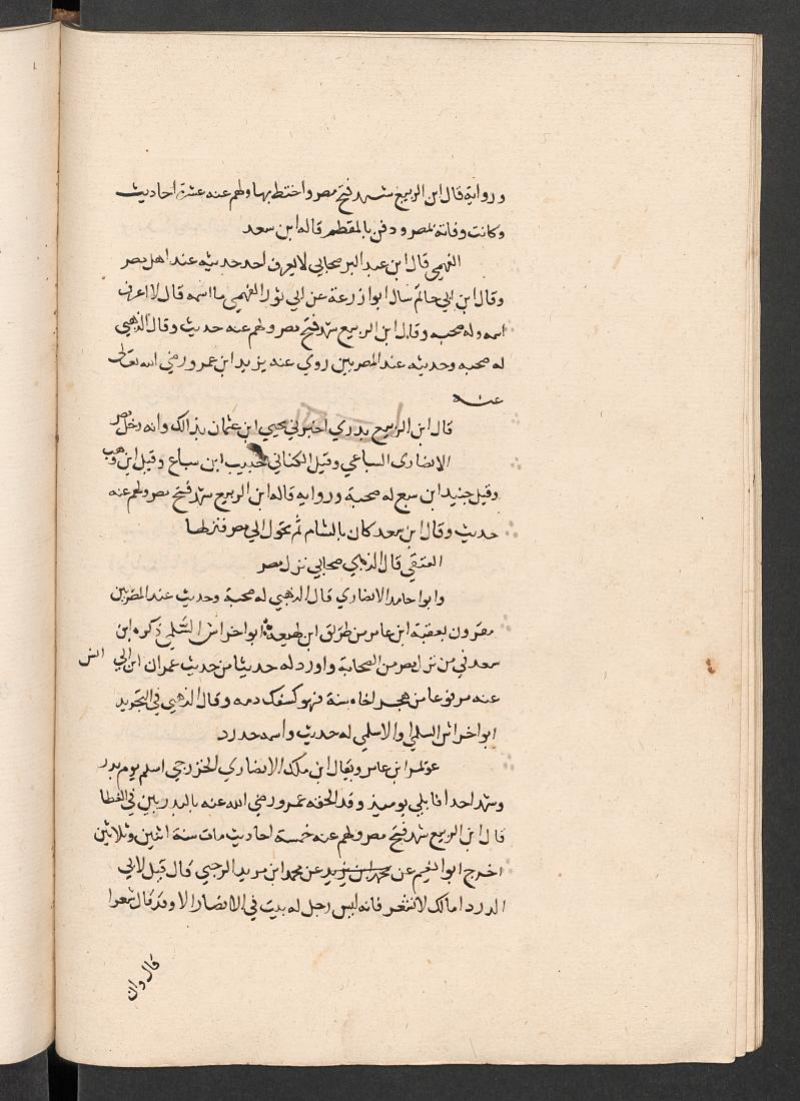 ورواية قال ابن الربيع شهد فتح مصر واختط بها ولهم عنه عشرة احاديث
وكانت وفاته بمصر ودفن بالمقطم قاله ابن سعد
الفهمي قال ابن عبد البر صحابي لا يعرف احد حديثه عند اهل مصر
وقال ابن ابي حاتم سال ابوا زرعة عن ابي ثور الفهمي ما اسمه قال لا اعرف
اسمه وله صحبه وقال ابن الربيع شهد فتح مصر ولهم عنه حديث وقال الذهبي
له صحبه وحديثه عند المصريين روي عنه يزيد ابن عمرو رضي الله تعالى
عنه
قال ابن الربيع بدري اخبرني يحيي ابن عثمان بذالك وانه دخل مصر
الانضاري السباعي وقيل الكناني حبيب ابن سباع وقيل ابن وهب
وقيل جنيد ابن سبع له صحبة ورواية قاله ابن الربيع شهد فتح مصر ولهم عنه
حديث وقال ابن سعد كان بالشام ثم تحول الي مصر فنزلها
العتقي قال الذهبي صحابي نزل مصر
وابوا حامد الانضاري قال الذهبي له صحبة وحديث عند المصريين
مقرون بعقبة ابن عامر من طريق ابن لهيعة ابوا خراش السلمي ذكره ابن
سعد في من نزل مصر من الصحابة واورد له حديثا من حديث عمران ابن ابي انس
عنه مرفوعا من هجر اخاه سنة فهو كسفك دمه وقال الذهبي في التجريد
ابوا خراش السلمي والاسلمي له حديث واسمه حدرد
عويمر ابن عامر ويقال ابن ملك الانضاري الخزرجي اسلم يوم بدر
وشهد احدا فابلي يوميذ وقد الحقه عمرو رضي الله عنه بالبدريين في العطا
قال ابن الربيع شهد فتح مصر ولهم عنه خمسة احاديث مات سنة اثنين وثلاثين
اخرج ابوا نعيم عن محمد ابن يزيد عن محمد ابن مريد الرحبي قال قيل لابي
الدردا مالك لا تشعر فانه ليس رجل له بيت في الانضار الا وقد قال شعرا
قال وان